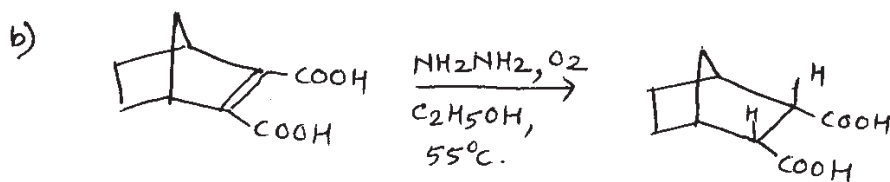 b)
COOH
COOH
NH2NH2, O2
C2H5OH,
55°C.
H
H
COOH
COOH